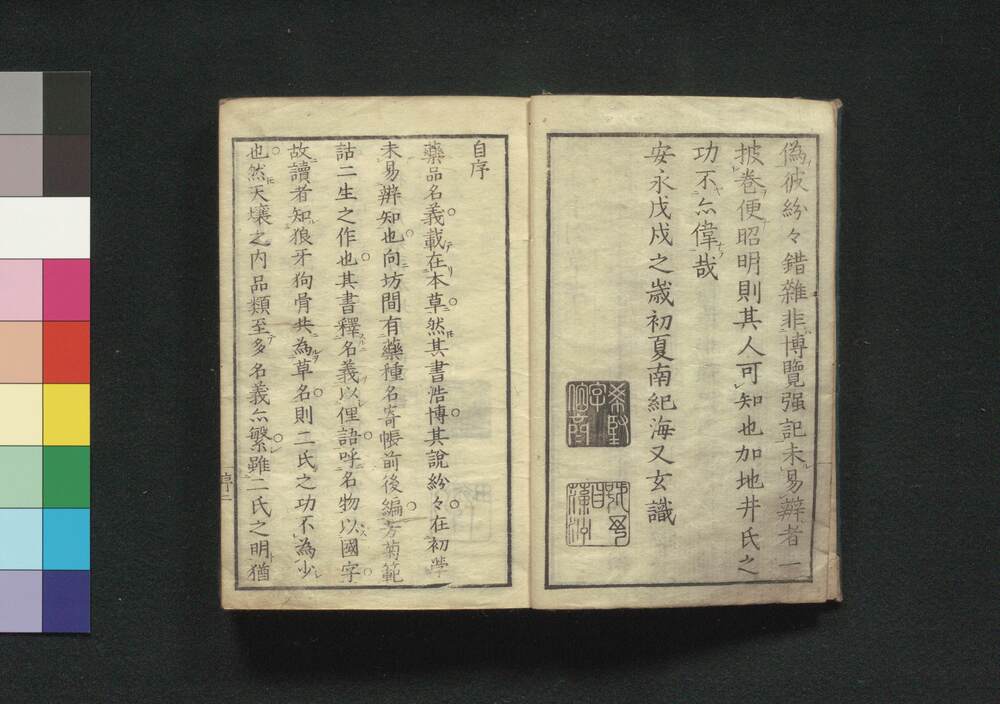 偽彼紛々錯雜非博覽强記未易辨者一
披卷便昭明則其人可知也加地井氏之
功不亦偉哉
安永戊戌之歳初夏南紀海又玄識
自序
藥品名義載在本草然其書浩博其説紛々在初學
未易辨知也向坊間有藥種名寄帳前後編芳菊範
詁二生之作也其書釋名義以俚語呼名物以國字
故讀者知狼牙狗骨共為草名則二氏之功不為少
也然天壤之内品類至多名義亦繁雖二氏之明猶
序二